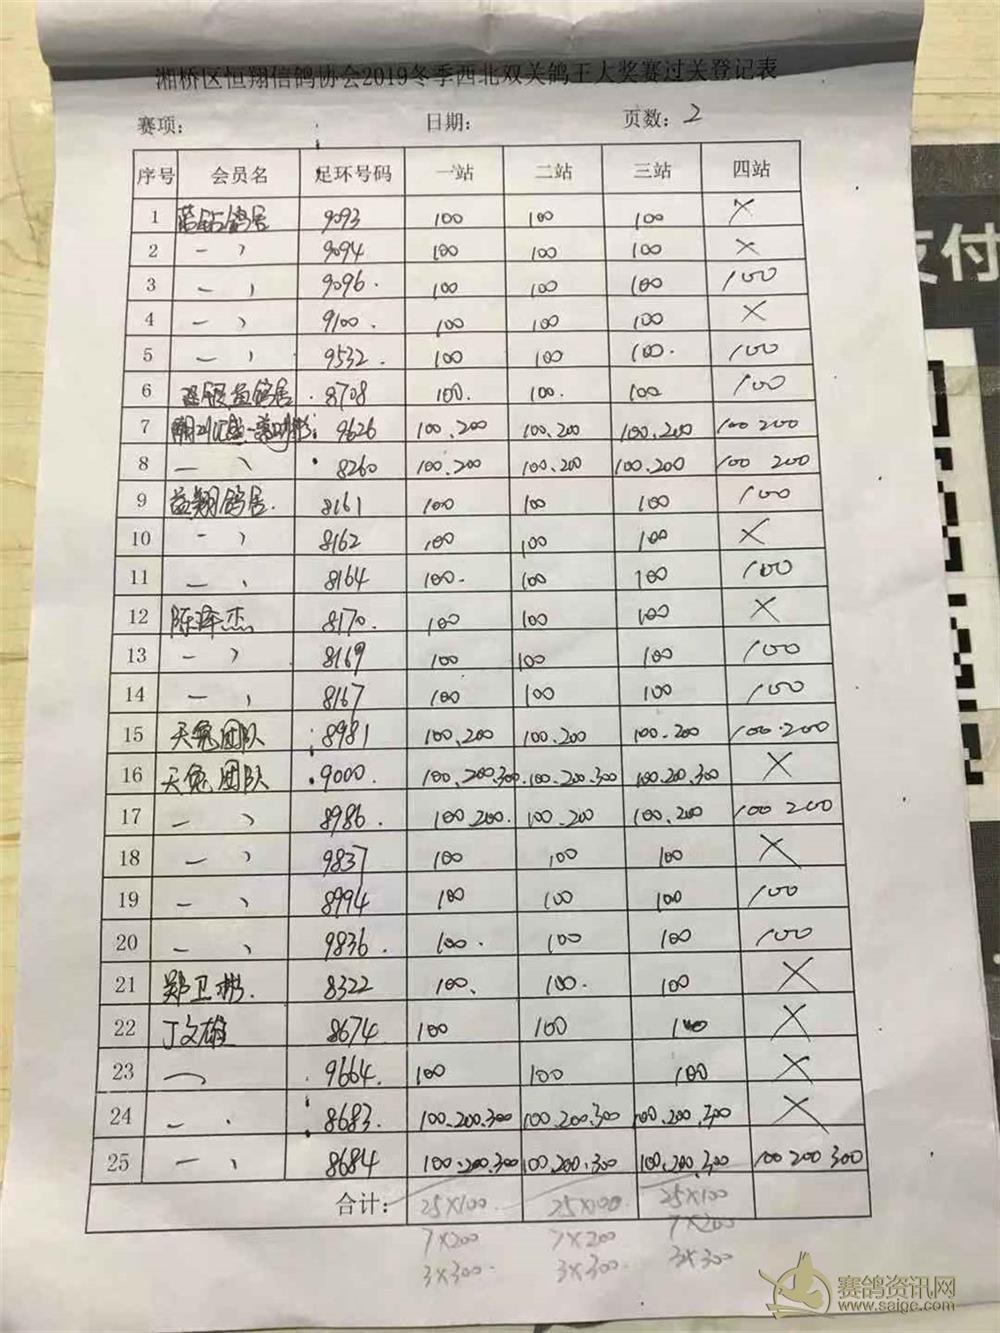 湘桥区恒翔信鸽协会2019冬季西北双关鸽王大奖赛过关登记表
赛项: 日期: 页数: 2
序号 会员名 足环号码 一站 二站 三站 四站
1 蓝钻鸽居 9093 100 100 100 ×
2 一 、 9094 100 100 100 ×
3 一 、 9096. 100 100 100 100
4 一 、 9100. 100 100 100 ×
5 一 、 9532. 100 100 100. 100
6 鸽居 . 8708 100. 100. 100 100
7 9626 100.200 100.200 100.200 100 200
8 一 、 8260 100.200 100.200 100.200 100 200
9 益翔鸽居. 8161 100 100 100 100
10 一 、 8162 100 100 100 ×
11 一 、 8164 100. 100 100 100
12 陈泽杰 8170. 100 100 100 ×
13 一 、 8169 100 100 100 100
14 一 、 8167 100 100 100 100
15 天兔团队 8981 100.200 100.200 100.200 100.200
16 天兔团队 .9000. 100.200.300 100.200.300 100.200.300 ×
17 一 、 8986. 100.200. 100.200 100.200 100 200
18 一 、 9837 100 100 100 ×
19 一 、 8994 100 100 100 100
20 一 、 9836. 100. 100 100 100
21 郑卫彬. 8322 100. 100. 100 ×
22 丁文雄 8674 100 100 100 ×
23 一 、 9664. 100 100 100 ×
24 一 . 8683. 100.200.300 100.200.300 100.200.300 ×
25 一 、 8684 100.200.300 100.200.300 100.200.300 100 200 300
合计: 25×100. 25×100. 25×100
7×200 7×200 7×200
3×300. 3×300. 3×300
支付
赛鸽资讯网
www.saige.com